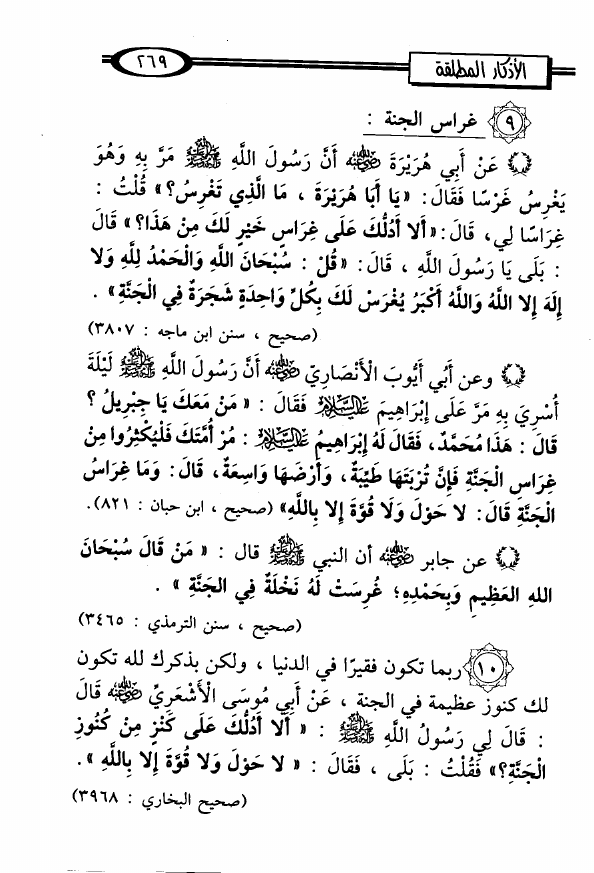 الأذكار المطلقة
٢٦٩
٩ غراس الجنة :
عَنْ أَبِي هُرَيْرَةَ رضي الله عنه أَنَّ رَسُولَ اللَّهِ صلى الله عليه وسلم مَرَّ بِهِ وَهُوَ
يَغْرِسُ غَرْسًا فَقَالَ: «يَا أَبَا هُرَيْرَةَ ، مَا الَّذِي تَغْرِسُ؟» قُلْتُ :
غِرَاسًا لِي، قَالَ: «أَلا أَدُلُّكَ عَلَى غِرَاسٍ خَيْرٍ لَكَ مِنْ هَذَا؟» قَالَ
: بَلَى يَا رَسُولَ اللَّهِ ، قَالَ: «قُلْ : سُبْحَانَ اللَّهِ وَالْحَمْدُ لِلَّهِ وَلا
إِلَهَ إِلا اللَّهُ وَاللَّهُ أَكْبَرُ يُغْرَسْ لَكَ بِكُلِّ وَاحِدَةٍ شَجَرَةٌ فِي الْجَنَّةِ» .
(صحيح ، سنن ابن ماجه : ٣٨٠٧)
وعن أَبي أَيُّوبَ الْأَنْصَارِيِّ رضي الله عنه أَنَّ رَسُولَ اللَّهِ صلى الله عليه وسلم لَيْلَةَ
أُسْرِيَ بِهِ مَرَّ عَلَى إِبْرَاهِيمَ عليه السلام فَقَالَ : « مَنْ مَعَكَ يَا جِبْرِيلُ ؟
قَالَ : هَذَا مُحَمَّدٌ، فَقَالَ لَهُ إِبْرَاهِيمُ عليه السلام : مُرْ أُمَّتَكَ فَلْيُكْثِرُوا مِنْ
غِرَاسِ الْجَنَّةِ فَإِنَّ تُرْبَتَهَا طَيِّبَةٌ، وَأَرْضَهَا وَاسِعَةٌ، قَالَ: وَمَا غِرَاسُ
الْجَنَّةِ قَالَ: لا حَوْلَ وَلَا قُوَّةَ إِلا بِاللَّهِ» (صحيح ، ابن حبان : ٨٢١).
عن جابر رضي الله عنه أن النبي صلى الله عليه وسلم قال : « مَنْ قَالَ سُبْحَانَ
اللهِ العَظِيمِ وَبِحَمْدِهِ؛ غُرِسَتْ لَهُ نَخْلَةٌ فِي الجَنَّةِ » .
(صحيح ، سنن الترمذي : ٣٤٦٥)
١٠ ربما تكون فقيرًا في الدنيا ، ولكن بذكرك لله تكون
لك كنوز عظيمة في الجنة ، عَنْ أَبِي مُوسَى الْأَشْعَرِيِّ رضي الله عنه قَالَ
: قَالَ لِي رَسُولُ اللَّهِ صلى الله عليه وسلم : « أَلا أَدُلُّكَ عَلَى كَنْزٍ مِنْ كُنُوزِ
الْجَنَّةِ؟» فَقُلْتُ : بَلَى ، فَقَالَ : « لا حَوْلَ وَلا قُوَّةَ إِلا بِاللَّهِ ».
(صحيح البخاري : ٣٩٦٨)